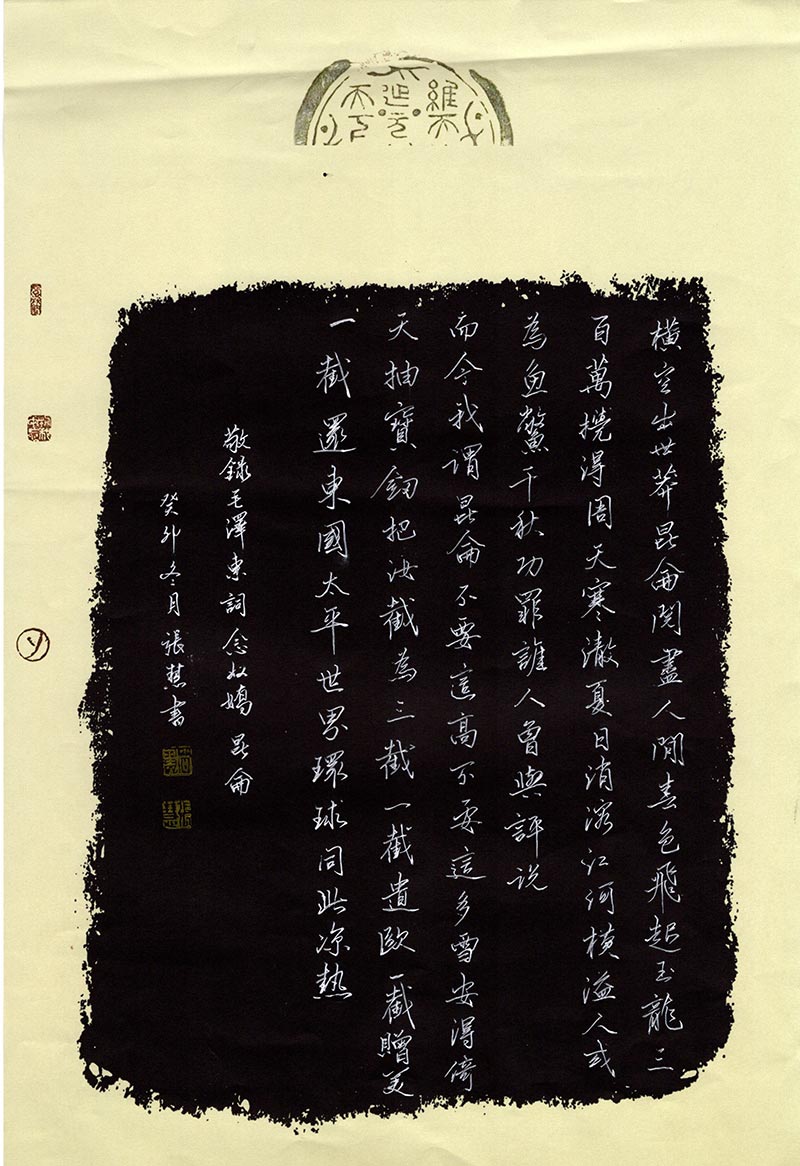 維天
延元
天下
橫空出世莽昆侖閱盡人間春色飛起玉龍三
百萬攪得周天寒澈夏日消溶江河橫溢人或
為魚鱉千秋功罪誰人曾與評説
而今我謂昆侖不要這高不要這多雪安得倚
天抽寶釼把汝截為三截一截遺歐一截贈美
一截還東國太平世界環球同此凉熱
敬錄毛澤東詞念奴嬌昆侖
癸卯冬月張慧書